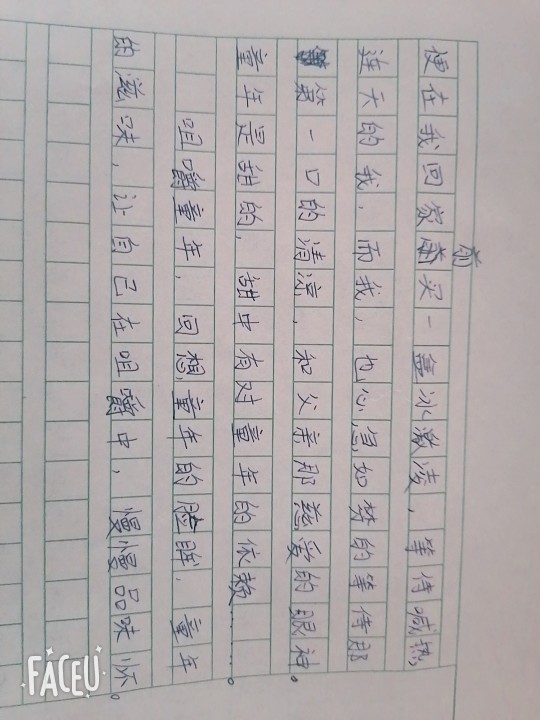 便在我回家前买一盒冰激凌，等待喊热
连天的我，而我，也心急如焚的等待那
第一口的清凉，和父亲那慈爱的眼神。
童年是甜的，甜中有对童年的依赖……。
咀嚼童年，回想童年的脸眸，童年
的滋味，让自己在咀嚼中，慢慢品味怀。
FACEU